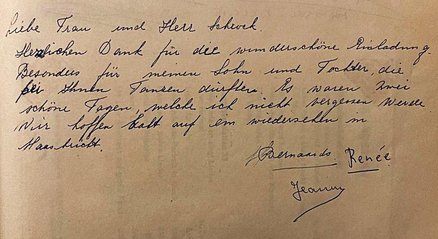 Liebe Frau und Herr Schock.
Herzlichen Dank für die wunderschöne Einladung.
Besonders für meinen Sohn und Tochter, die
bei Ihnen Tanzen dürften. Es waren zwei
schöne Tagen, welche ich nicht vergesen werde
Wir hoffen balt auf ein wiedersehen in
Maastricht.
Bernaards Renée